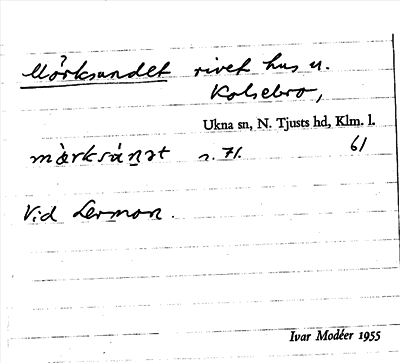 Mörksundet rivet hus u.
Kolsebro,
Ukna sn, N. Tjusts hd, Klm. l.
mὰrksánət n. 71. 61
Vid Lermon.
Ivar Modéer 1955